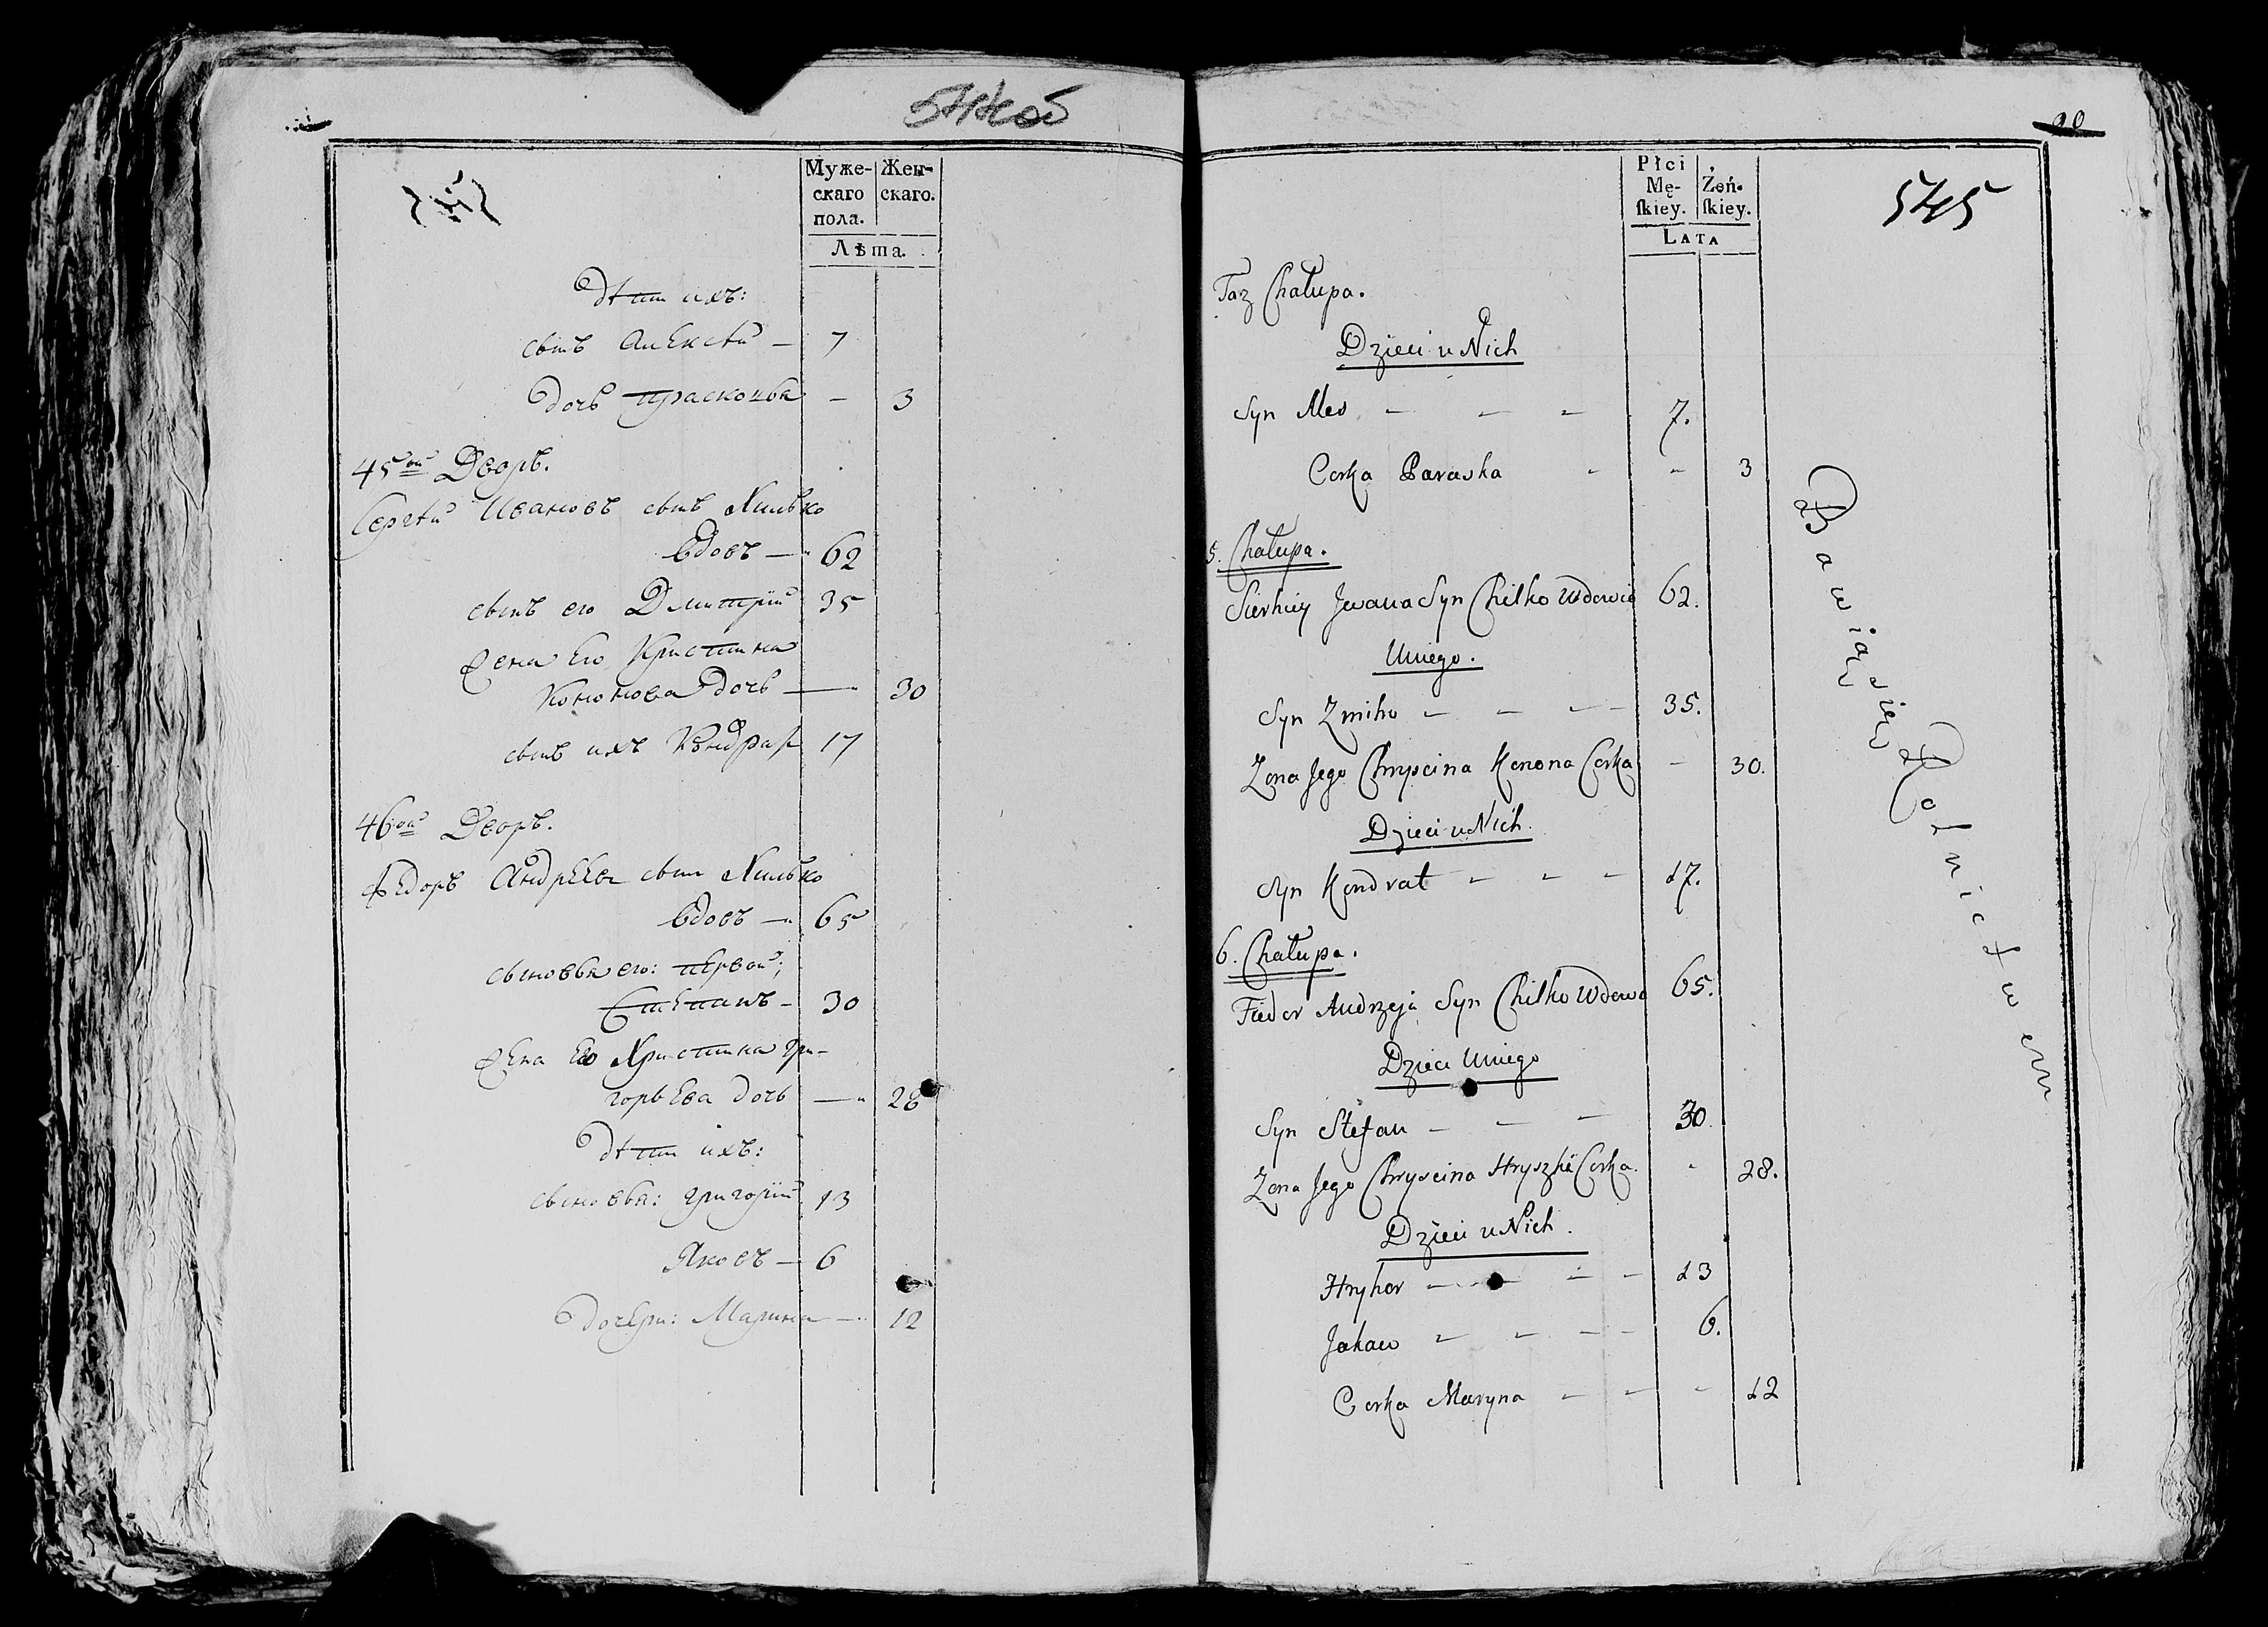 Муже-
скаго
пола.
Жен-
скаго.
Лѣта.
Дѣти ихъ:
сынъ Алексѣй — 7
дочь Прасковья — 3
45ой Дворъ.
Сергѣй Ивановъ сынъ Хилько
вдовъ — 62
сынъ его Дмитрій 35
жена Его Кристина
Кононова дочь — 30
сынъ ихъ Кондрат 17
46ой Дворъ.
Федоръ Андрѣевъ сынъ Хилько
вдовъ — 65
сыновья его: первой;
Степанъ — 30
жена Его Христина Гри-
горьева дочь — 28
Дѣти ихъ:
сыновья: Григорій 13
Яковъ — 6
дочери: Марина — 12
20
545
Płci
Mę-
skiey.
Żeń-
skiey.
LATA
Taz Chałupa.
Dzieci u Nich
Syn Alexo — — — 7.
Corka Paraska - - 3
5. Chałupa.
Sierhiey Jwana Syn Chilko Wdowiec 62.
Uniego.
Syn Zmiho — — — — 35.
Zona Jego Chryscina Konona Corka — 30.
Dzieci u Nich.
Syn Kondrat — — — 17.
6. Chałupa.
Fiedor Andrzeja Syn Chilko Wdowie 65.
Dzieci Uniego
Syn Stefan — — — 30.
Zona Jego Chryscina Hryszki Corka. - 28.
Dzieci u Nich.
Hryhor — — — — 13
Jakow — — — — 6.
Corka Maryna — — — 12
Bawią się Rolnictwem